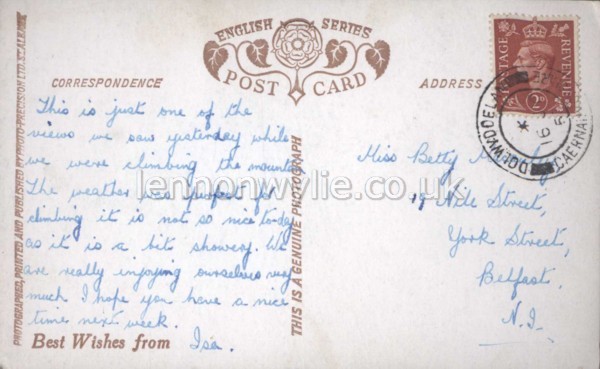 ENGLISH SERIES
POST CARD
CORRESPONDENCE
ADDRESS
This is just one of the
views we saw yesterday while
we were climbing the mountain
The weather was perfect for
climbing it is not so nice today
as it is a bit showery. We
are really enjoying ourselves very
much I hope you have a nice
time next week.
Best Wishes from Isa.
PHOTOGRAPHED, PRINTED AND PUBLISHED BY PHOTO-PRECISION LTD. ST. ALBANS
THIS IS A GENUINE PHOTOGRAPH
POSTAGE REVENUE
2D
DOLWYDDELAN
CAERNAR
Miss Betty
19 Nile Street,
York Street,
Belfast.
N.I.
lennonwylie.co.uk